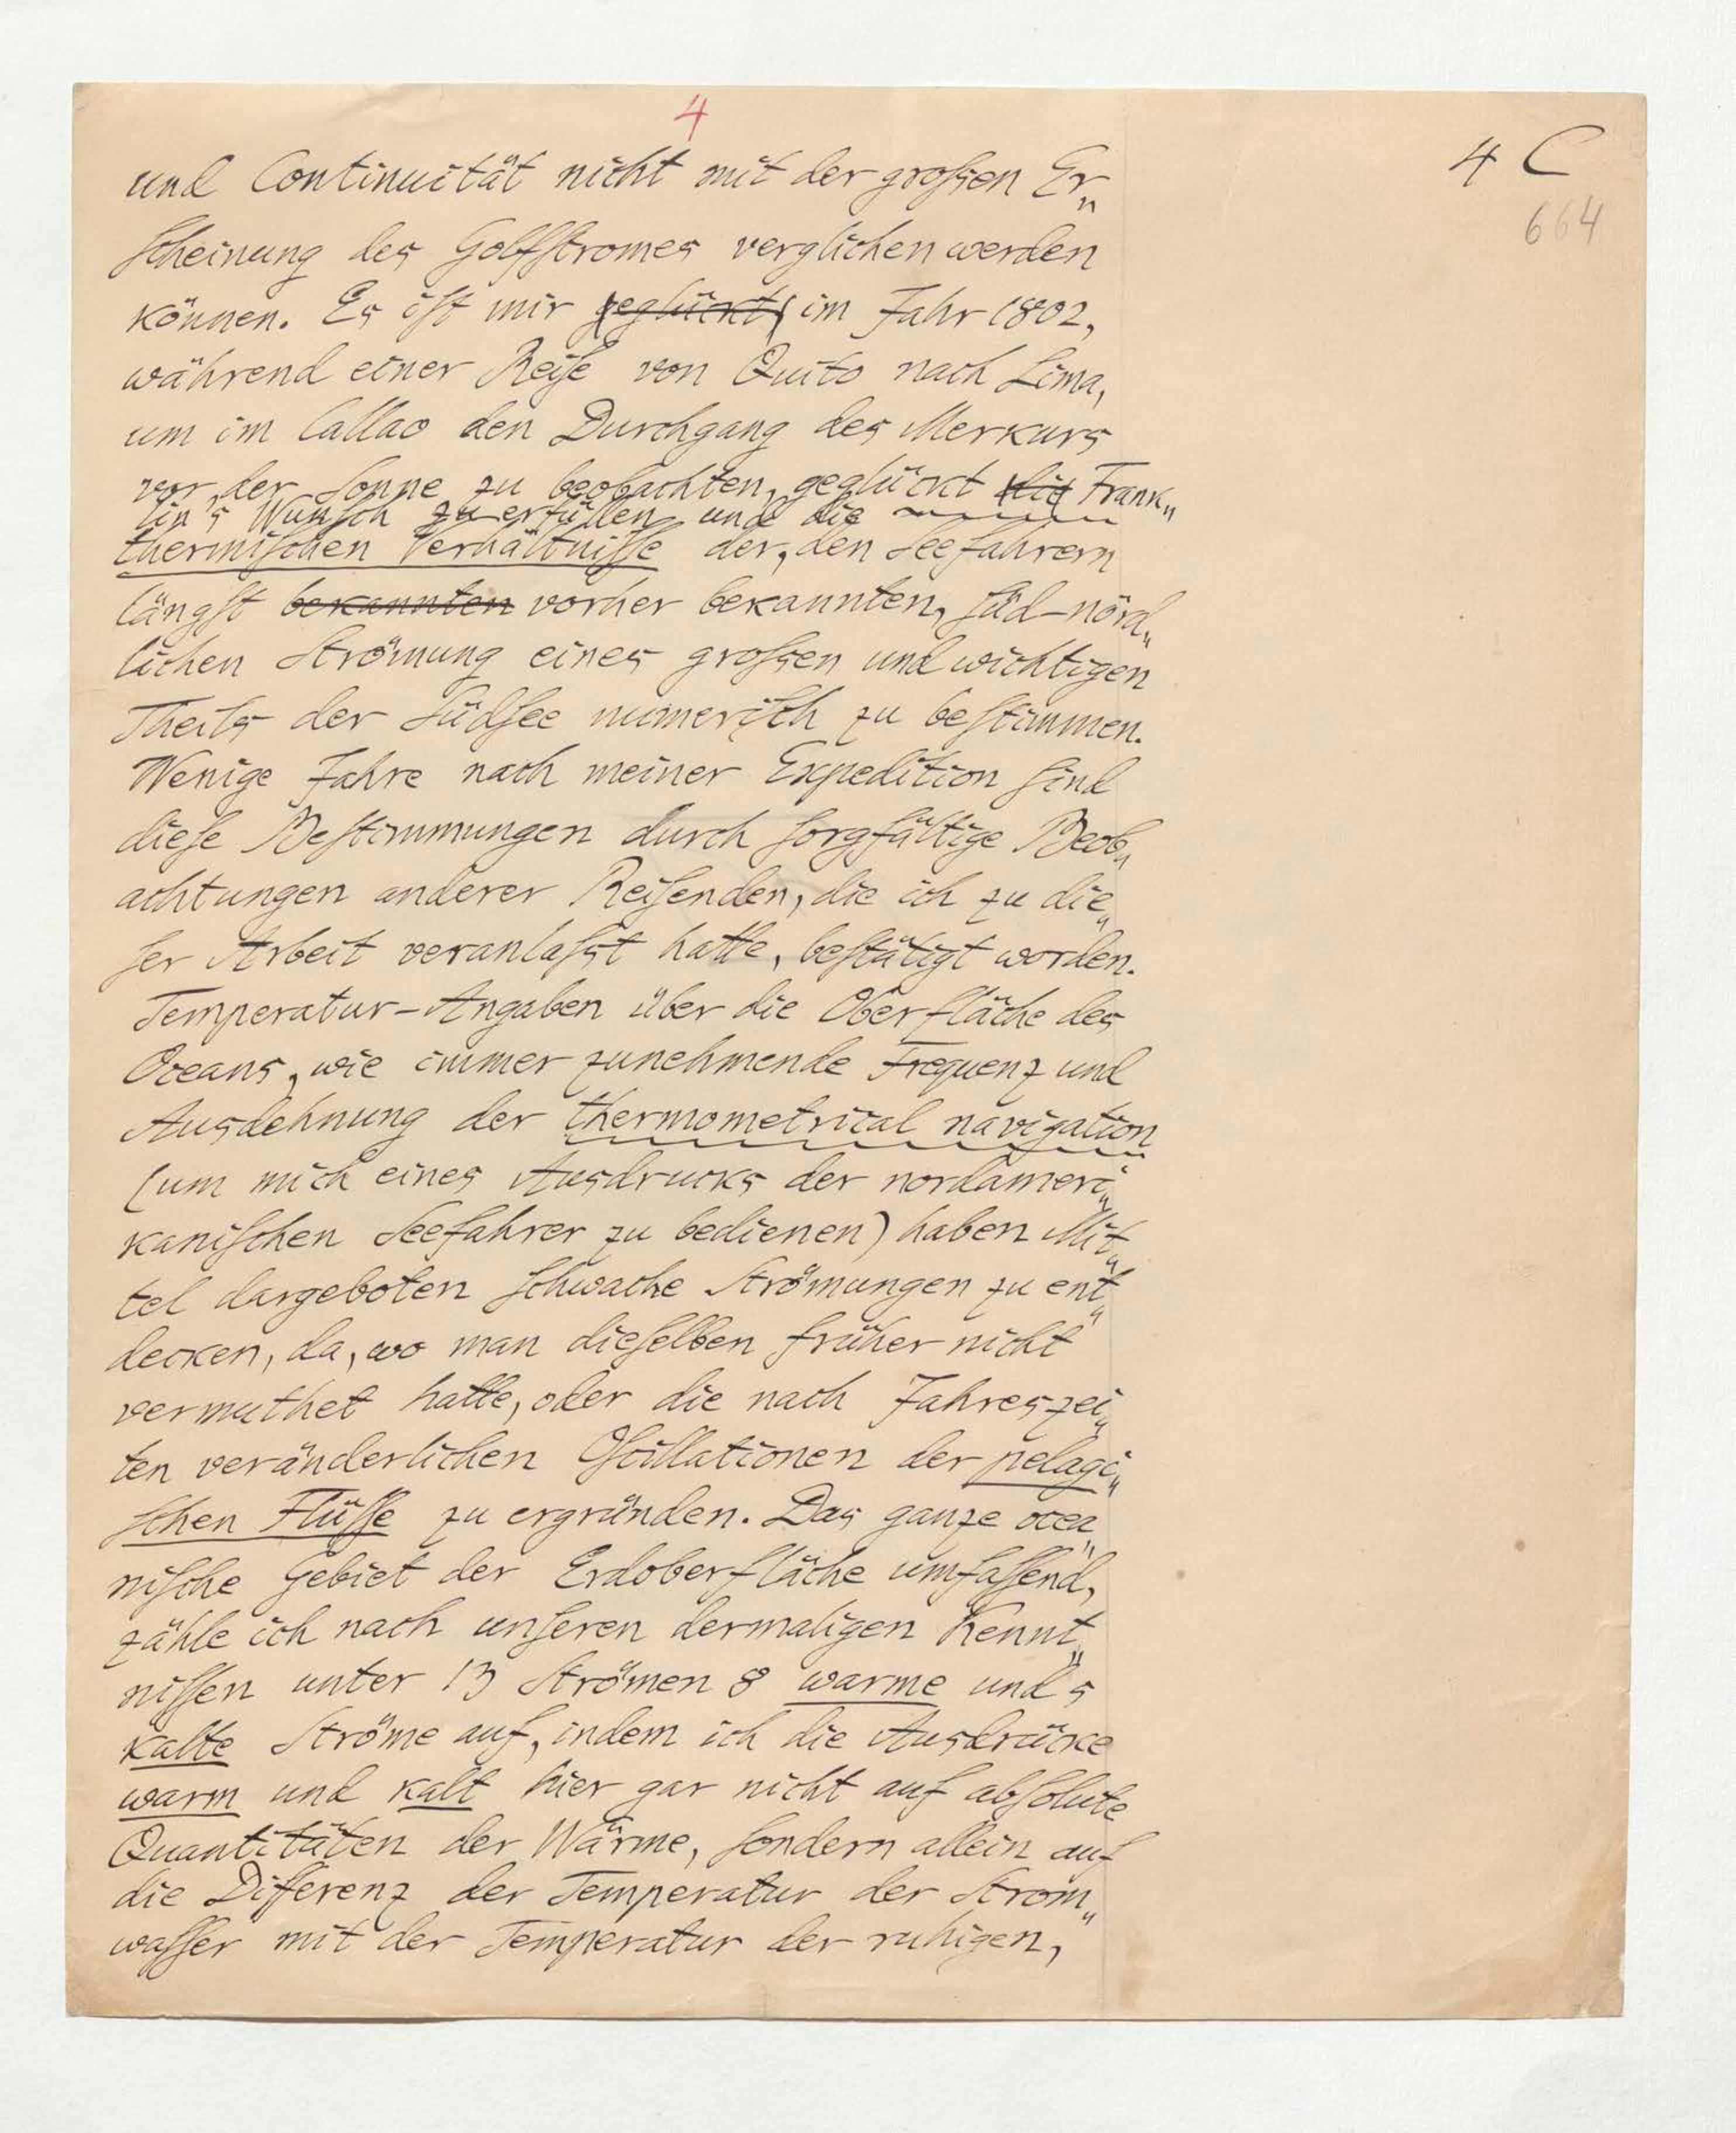 4
4 C
664
und Continuität nicht mit der großen Er„
scheinung des Golfstromes verglichen werden
können. Es ist mir geglückt im Jahr 1802,
während einer Reise von Quito nach Lima,
um im Callao den Durchgang des Merkurs
vor der Sonne zu beobachten, geglückt die Frank„
lin's Wunsch zu erfüllen und die
thermischen Verhältnisse der, den Seefahrern
längst bekannten vorher bekannten, süd-nörd„
lichen Strömung eines großen und wichtigen
Theils der Südsee numerisch zu bestimmen.
Wenige Jahre nach meiner Expedition sind
diese Bestimmungen durch sorgfältige Beob„
achtungen anderer Reisenden, die ich zu die„
ser Arbeit veranlaßt hatte, bestätigt worden.
Temperatur-Angaben über die Oberfläche des
Oceans, wie immer zunehmende Frequenz und
Ausdehnung der thermometrical navigation
(um mich eines Ausdrucks der nordameri„
kanischen Seefahrer zu bedienen) haben Mit„
tel dargeboten schwache Strömungen zu ent„
decken, da, wo man dieselben früher nicht
vermuthet hatte, oder die nach Jahreszei„
ten veränderlichen Oscillationen der pelagi„
schen Flüsse zu ergründen. Das ganze ocea„
nische Gebiet der Erdoberfläche umfassend,
zähle ich nach unseren dermaligen Kennt„
nissen unter 13 Strömen 8 warme und 5
kalte Ströme auf, indem ich die Ausdrücke
warm und kalt hier gar nicht auf absolute
Quantitäten der Wärme, sondern allein auf
die Differenz der Temperatur der Strom„
wasser mit der Temperatur der ruhigen,